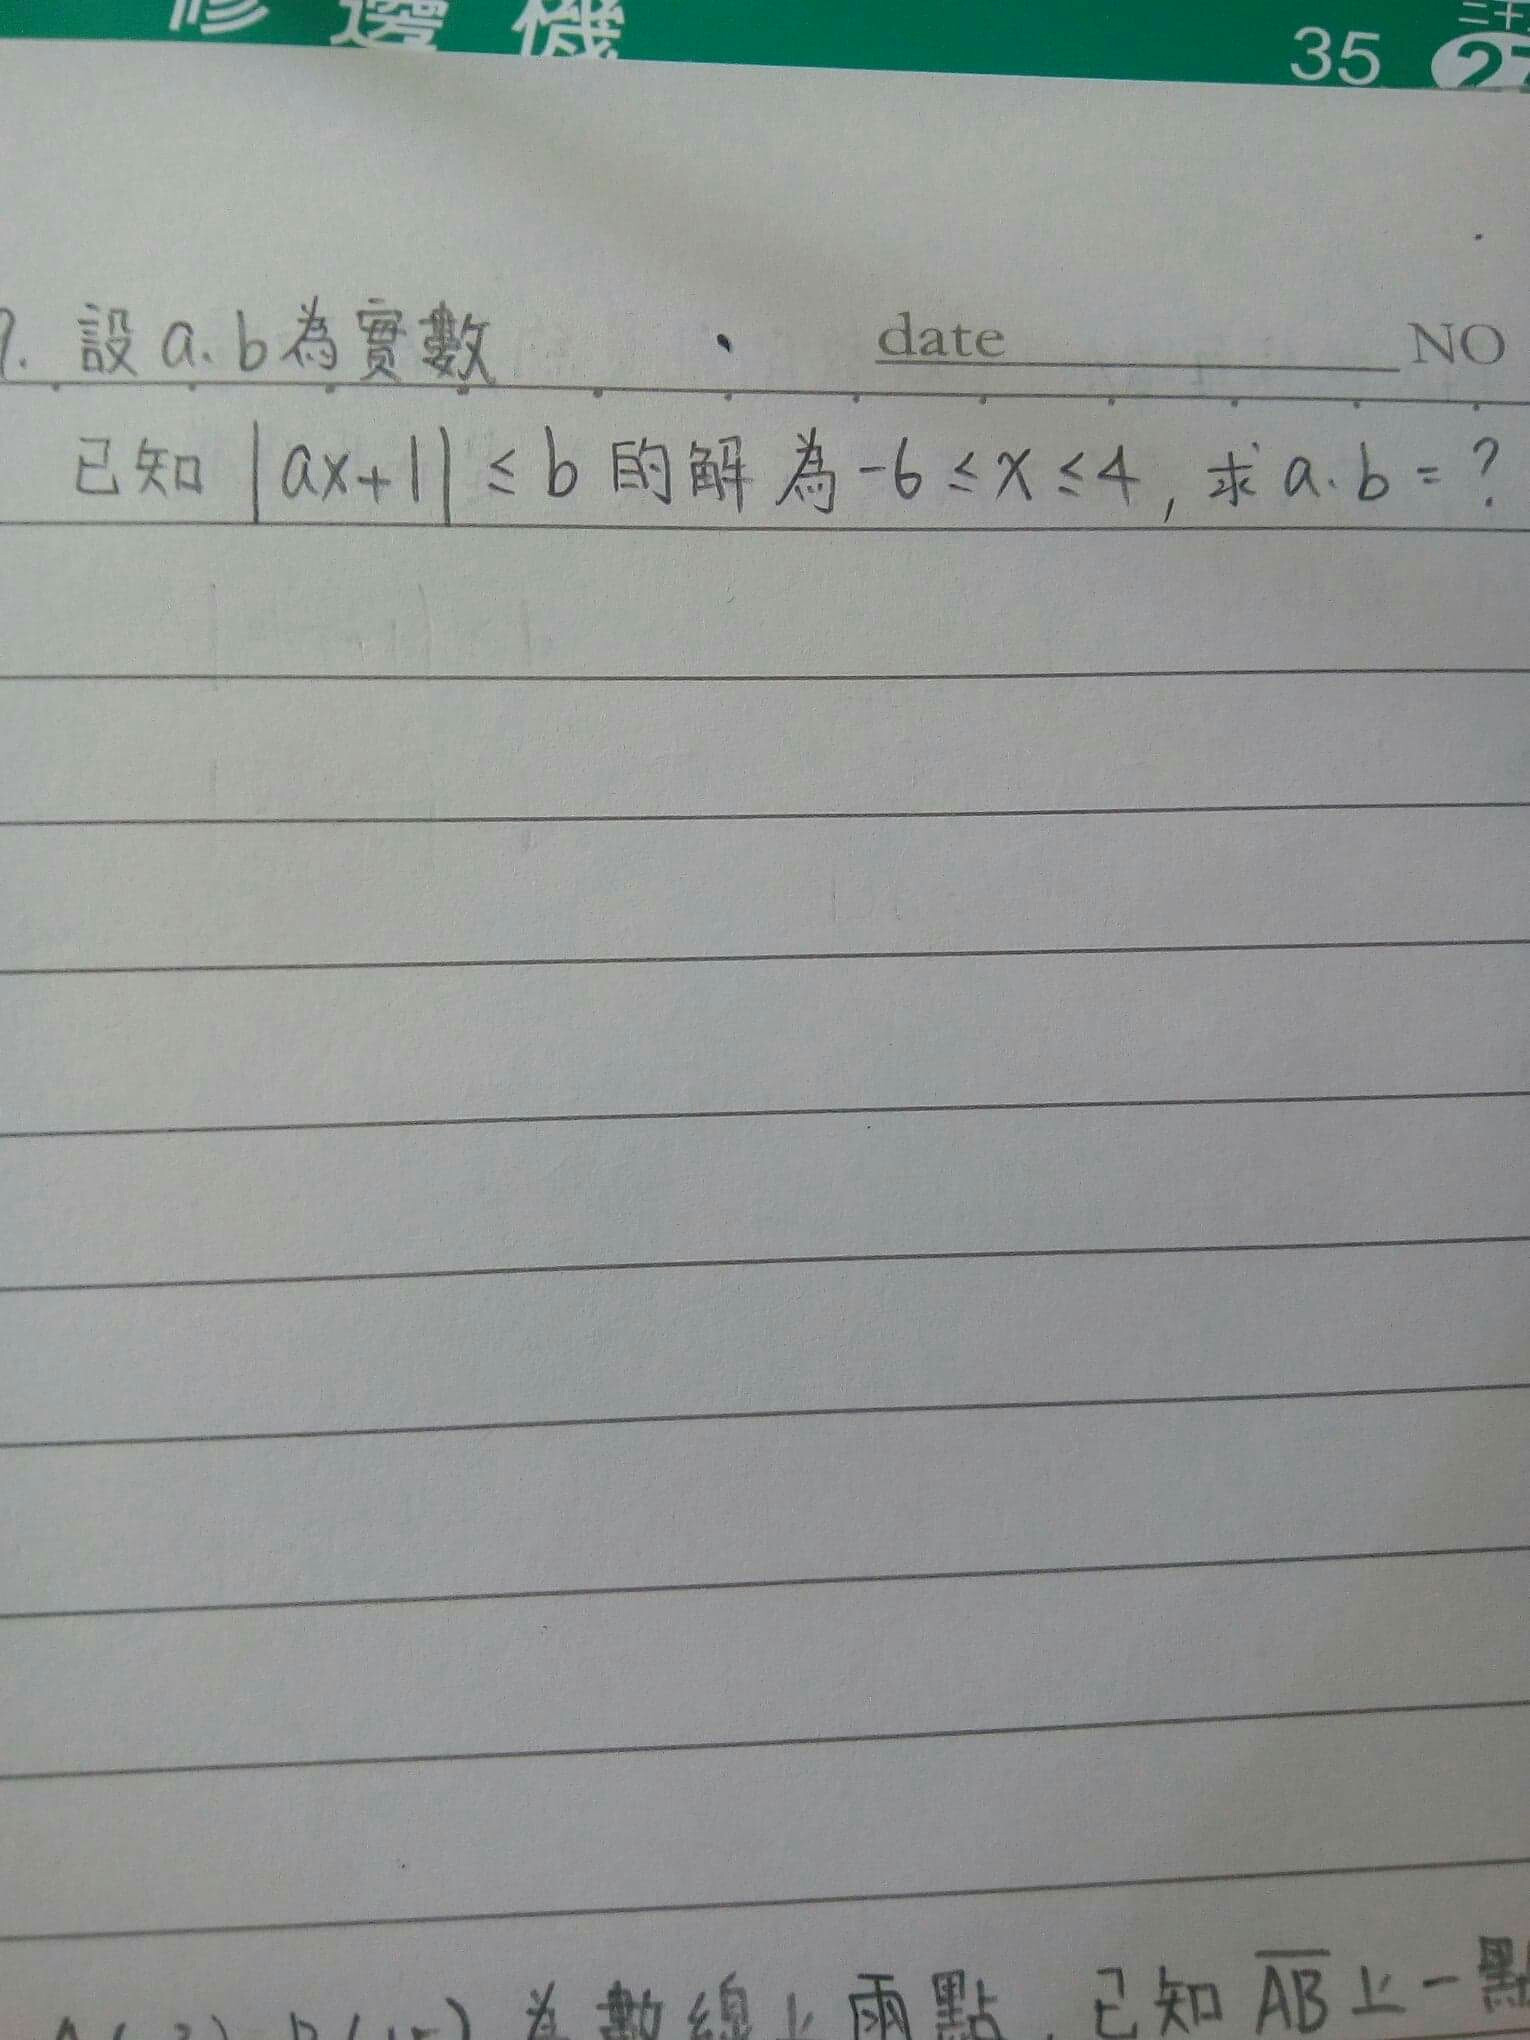 修邊機
35
9. 設 a.b 為實數
date NO
已知 |ax+1| ≤ b 的解為 -6 ≤ x ≤ 4, 求 a.b = ?
為數線上兩點. 已知 AB 上一點